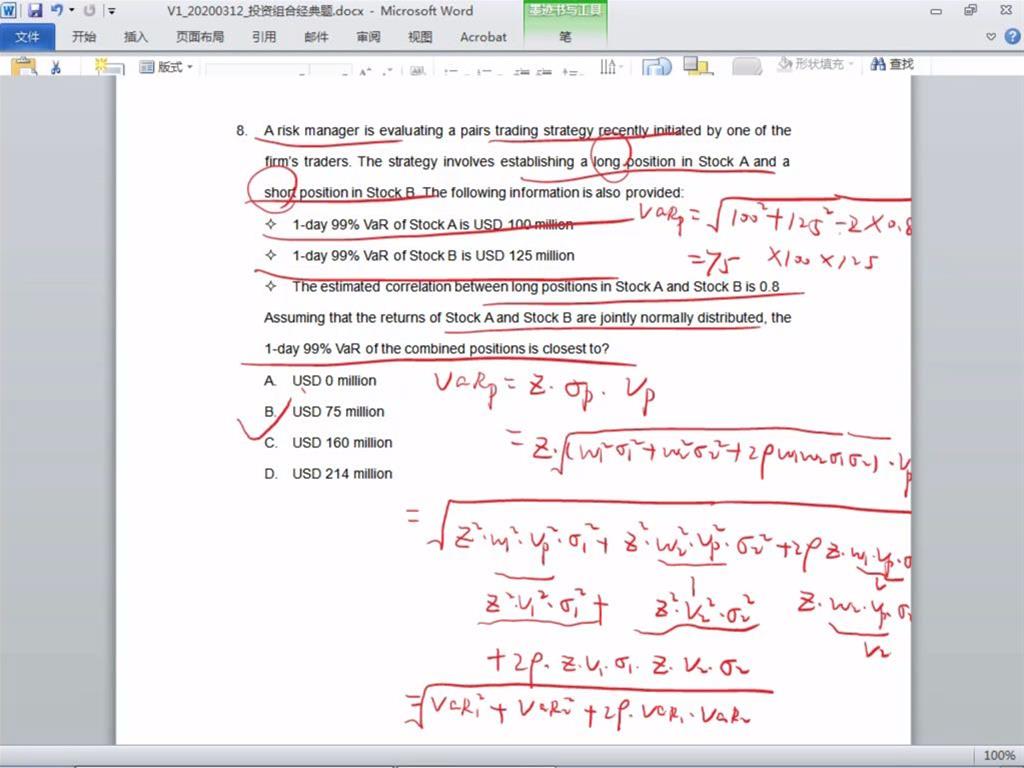 V1_20200312_投资组合经典题.docx - Microsoft Word
墨迹书写工具
文件 开始 插入 页面布局 引用 邮件 审阅 视图 Acrobat 笔
版式 形状填充 查找
8. A risk manager is evaluating a pairs trading strategy recently initiated by one of the
firm's traders. The strategy involves establishing a long position in Stock A and a
short position in Stock B. The following information is also provided:
VaRp = √100²+125²-2×0.8
✧ 1-day 99% VaR of Stock A is USD 100 million
✧ 1-day 99% VaR of Stock B is USD 125 million
=75 ×100×125
✧ The estimated correlation between long positions in Stock A and Stock B is 0.8
Assuming that the returns of Stock A and Stock B are jointly normally distributed, the
1-day 99% VaR of the combined positions is closest to?
A. USD 0 million
VaRp = z·σp·Vp
B. USD 75 million
C. USD 160 million
= z·√(w₁²σ₁²+w₂²σ₂²+2ρw₁w₂σ₁σ₂)·Vp
D. USD 214 million
= √z²·w₁²·Vp²·σ₁²+ z²·w₂²·Vp²·σ₂²+2ρ z·w₁·Vp·σ
z²·V₁²·σ₁²+ z²·V₂²·σ₂² z·w₂·Vp·σ
V₂
+2ρ·z·V₁·σ₁·z·V₂·σ₂
=√VaR₁²+VaR₂²+2ρ·VaR₁·VaR₂
100%